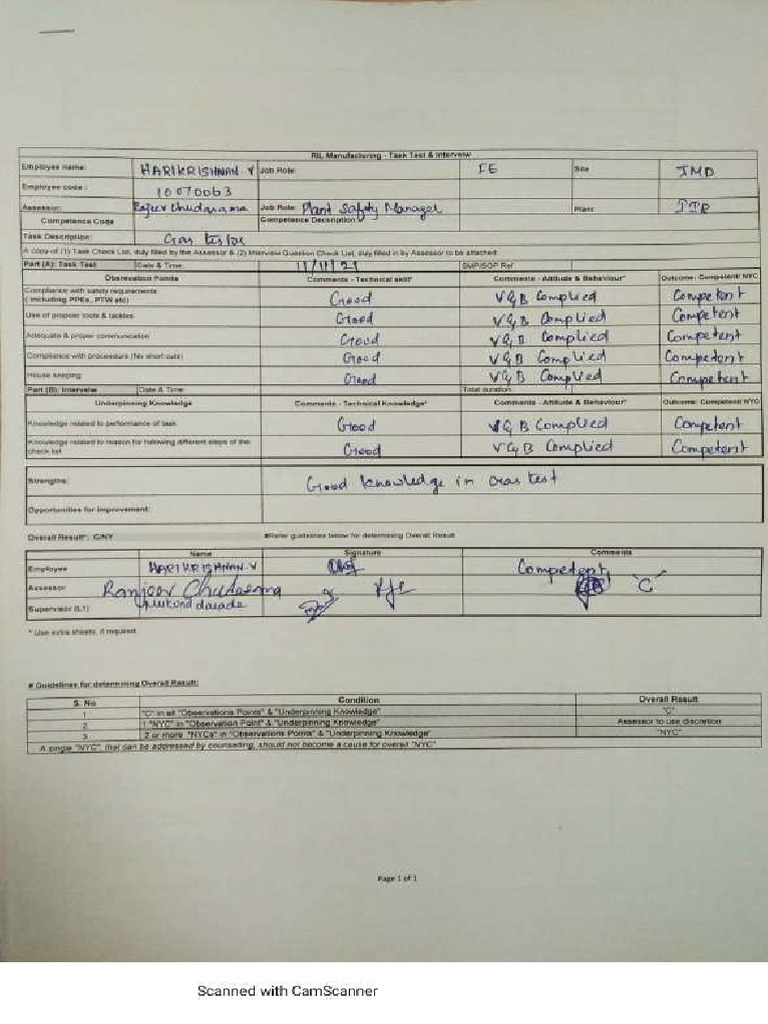 RIL Manufacturing - Task Test & Interveiw
Employee name: HARIKRISHNAN.V Job Role: FE Site JMD
Employee code : 10070063
Assessor: Job Role: Plant Safety Manager Plant
Competence Code Competence Decription
Task Description: Gas tester
A copy of (1) Task Check List, duly filled by the Assessor & (2) Interview Question Check List, duly filled in by Assessor to be attached
Part (A): Task Test Date & Time 11/11/21 SMP/SOP Ref
Obsrevation Points Comments - Technical skill* Comments - Attitude & Behaviour* Outcome: Competent/ NYC
Compliance with safety requirements
( including PPEs, PTW etc) Good VGB Complied Competent
Use of propoer tools & tackles Good VGB Complied Competent
Adequate & proper communication Good VGB Complied Competent
Compliance with procedure (No short cuts) Good VGB Complied Competent
House keeping Good VGB Complied Competent
Part (B): Interveiw Date & Time Total duration:
Underpinning Knowledge Comments - Technical Knowledge* Comments - Attitude & Behaviour* Outcome: Competent/ NYC
Knowledge related to performance of task Good VGB Complied Competent
Knowledge related to reason for following different steps of the
check list Good VGB Complied Competent
Strengths: Good knowledge in Gas test
Opportunities for improvement:
Overall Result#: C/NY #Refer guidelines below for determining Overall Result
Name Signature Comments
Employee HARIKRISHNAN.V Competent
Assessor Chudasama "C"
Supervisor (L1)
* Use extra sheets, if required
# Guidelines for determining Overall Result:
S. No Condition Overall Result
1 "C" in all "Observations Points" & "Underpinning Knowledge" "C"
2 1 "NYC" in "Observation Point" & "Underpinning Knowledge" Assessor to use discretion
3 2 or more "NYCs" in "Observations Points" & "Underpinning Knowledge" "NYC"
A single "NYC", that can be addressed by counseling, should not become a cause for overall "NYC"
Page 1 of 1
Scanned with CamScanner